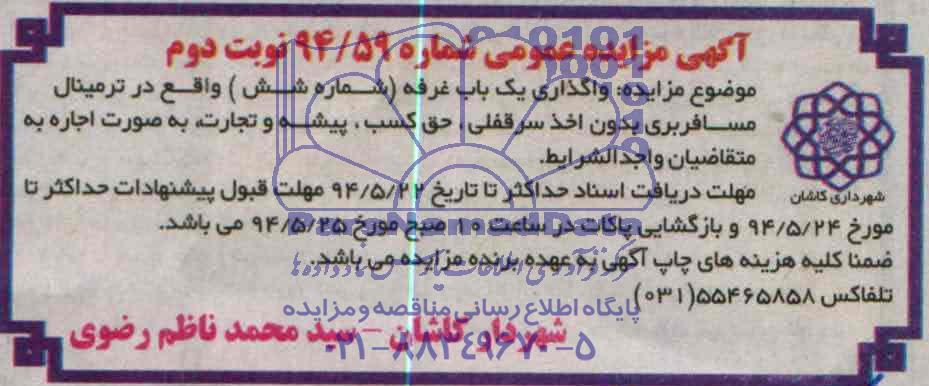 آگهی مزایده عمومی شماره ۹۴/۵۹ نوبت دوم
موضوع مزایده: واگذاری یک باب غرفه (شماره شش) واقع در ترمینال
مسافربری بدون اخذ سرقفلی، حق کسب، پیشه و تجارت، به صورت اجاره به
متقاضیان واجدالشرایط.
مهلت دریافت اسناد حداکثر تا تاریخ ۹۴/۵/۲۲ مهلت قبول پیشنهادات حداکثر تا
مورخ ۹۴/۵/۲۴ و بازگشایی پاکات در ساعت ۱۰ صبح مورخ ۹۴/۵/۲۵ می باشد.
ضمنا کلیه هزینه های چاپ آگهی به عهده برنده مزایده می باشد.
تلفاکس ۵۵۴۶۵۸۵۸(۰۳۱)
شهردار کاشان - سید محمد ناظم رضوی
شهرداری کاشان
پایگاه اطلاع رسانی مناقصه و مزایده
۰۲۱-۸۸۳۴۹۶۷۰-۵